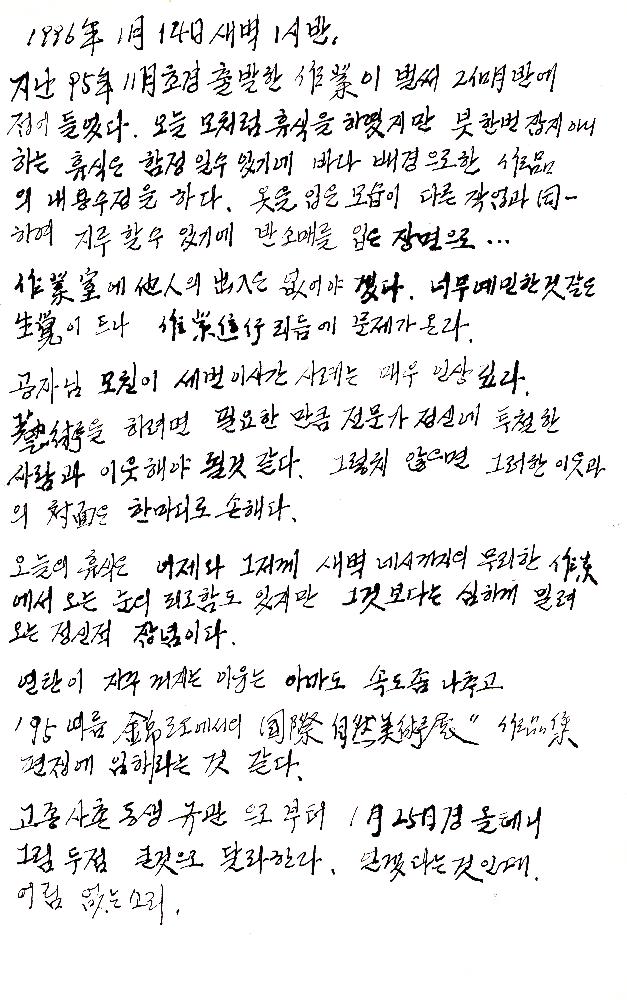 1996年 1月 14日 새벽 1시반.
지난 95年 11月초경 출발한 作業이 벌써 2개月반에
접어 들었다. 오늘 모처럼 휴식을 하였지만 붓한번 잡지 아니
하는 휴식은 함정일수 있기에 바다 배경으로한 作品
의 내용수정을 하다. 옷을 입은 모습이 다른 작업과 同一
하여 지루 할수 있기에 반소매를 입은 장면으로 ...
作業室에 他人의 出入은 없어야 겠다. 너무예민한것같은
生覺이 드나 作業進行리듬에 문제가 온다.
공자님 모친이 세번이사간 사례는 매우 인상 깊다.
藝術을 하려면 필요한 만큼 전문가 정신에 투철한
사람과 이웃해야 될것 같다. 그렇치 않으면 그러한 이웃과
의 対面은 한마디로 손해다.
오늘의 휴식은 어제와 그저께 새벽 네시까지의 무리한 作業
에서 오는 눈의 피로함도 있지만 그것보다는 심하게 밀려
오는 정신적 잡념이다.
연탄이 자꾸 꺼지는 이유는 아마도 속도좀 나추고
'95 여름 금강에서의 國際自然美術展" 作品集
편집에 임하라는 것 같다.
고종사촌 동생 규관 으로부터 1月 25日경 올테니
그림 두점 큰것으로 달라한다. 만
어림 없는소리.